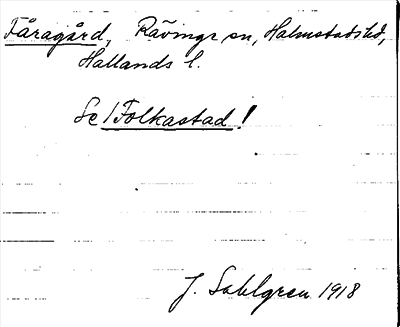 Fåragård, Rävinge sn, Halmstads hd,
Hallands l.
Se /Folkastad !
J. Sahlgren 1918